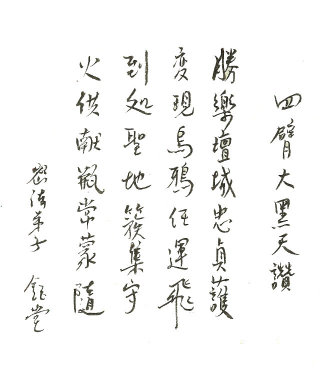 四臂大黑天讚
勝樂壇城忠貞護
變現烏鴉任運飛
到処聖地簇集守
火供献瓶常蒙隨
密法弟子 鈺堂